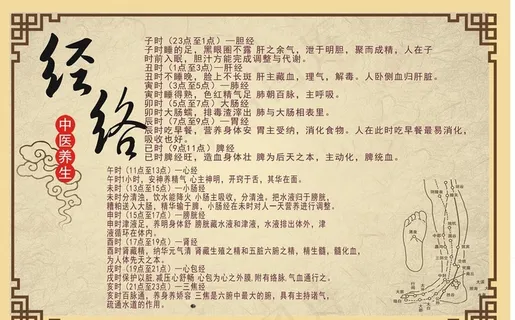 经络
中医养生
子时（23点至1点）—胆经
子时睡的足，黑眼圈不露 肝之余气，泄于明胆，聚而成精，人在子
时前入眠，胆汁方能完成调整与代谢。
丑时（1点至3点）—肝经
丑时不睡晚，脸上不长斑 肝主藏血，理气，解毒。人卧侧血归肝脏。
寅时（3点至5点）—肺经
寅时睡得熟，色红精气足 肺朝百脉，主呼吸。
卯时（5点至7点）大肠经
卯时大肠蠕，排毒渣滓出 肺与大肠相表里。
辰时（7点至9点）—胃经
辰时吃早餐，营养身体安 胃主受纳，消化食物。人在此时吃早餐最易消化，
吸收也好。
巳时（9点11点）脾经
巳时脾经旺，造血身体壮 脾为后天之本，主动化，脾统血。
午时（11点至13点）—心经
午时1小时，安神养精气 心主神明，开窍于舌，其华在面。
未时（13点至15点）—小肠经
未时分清浊，饮水能降火 小肠主吸收，分清浊，把水液归于膀胱，
糟粕送入大肠，精华输于脾，小肠经在未时对人一天营养进行调整。
申时（15点至17点）—膀胱经
申时津液足，养明身体舒 膀胱藏水液和津液，水液排出体外，津
液循环在体内。
酉时（17点至19点）—肾经
酉时肾藏精，纳华元气清 肾藏生殖之精和五脏六腑之精，精生髓，髓化血，
为人体先天之本。
戌时（19点至21点）—心包经
戌时保护以脏，减压心舒畅 心包为心之外膜，附有络脉，气血通行之。
亥时（21点至23点）—三焦经
亥时百脉通，养身养娇容 三焦是六腑中最大的腑，具有主持诸气，
疏通水道的作用。